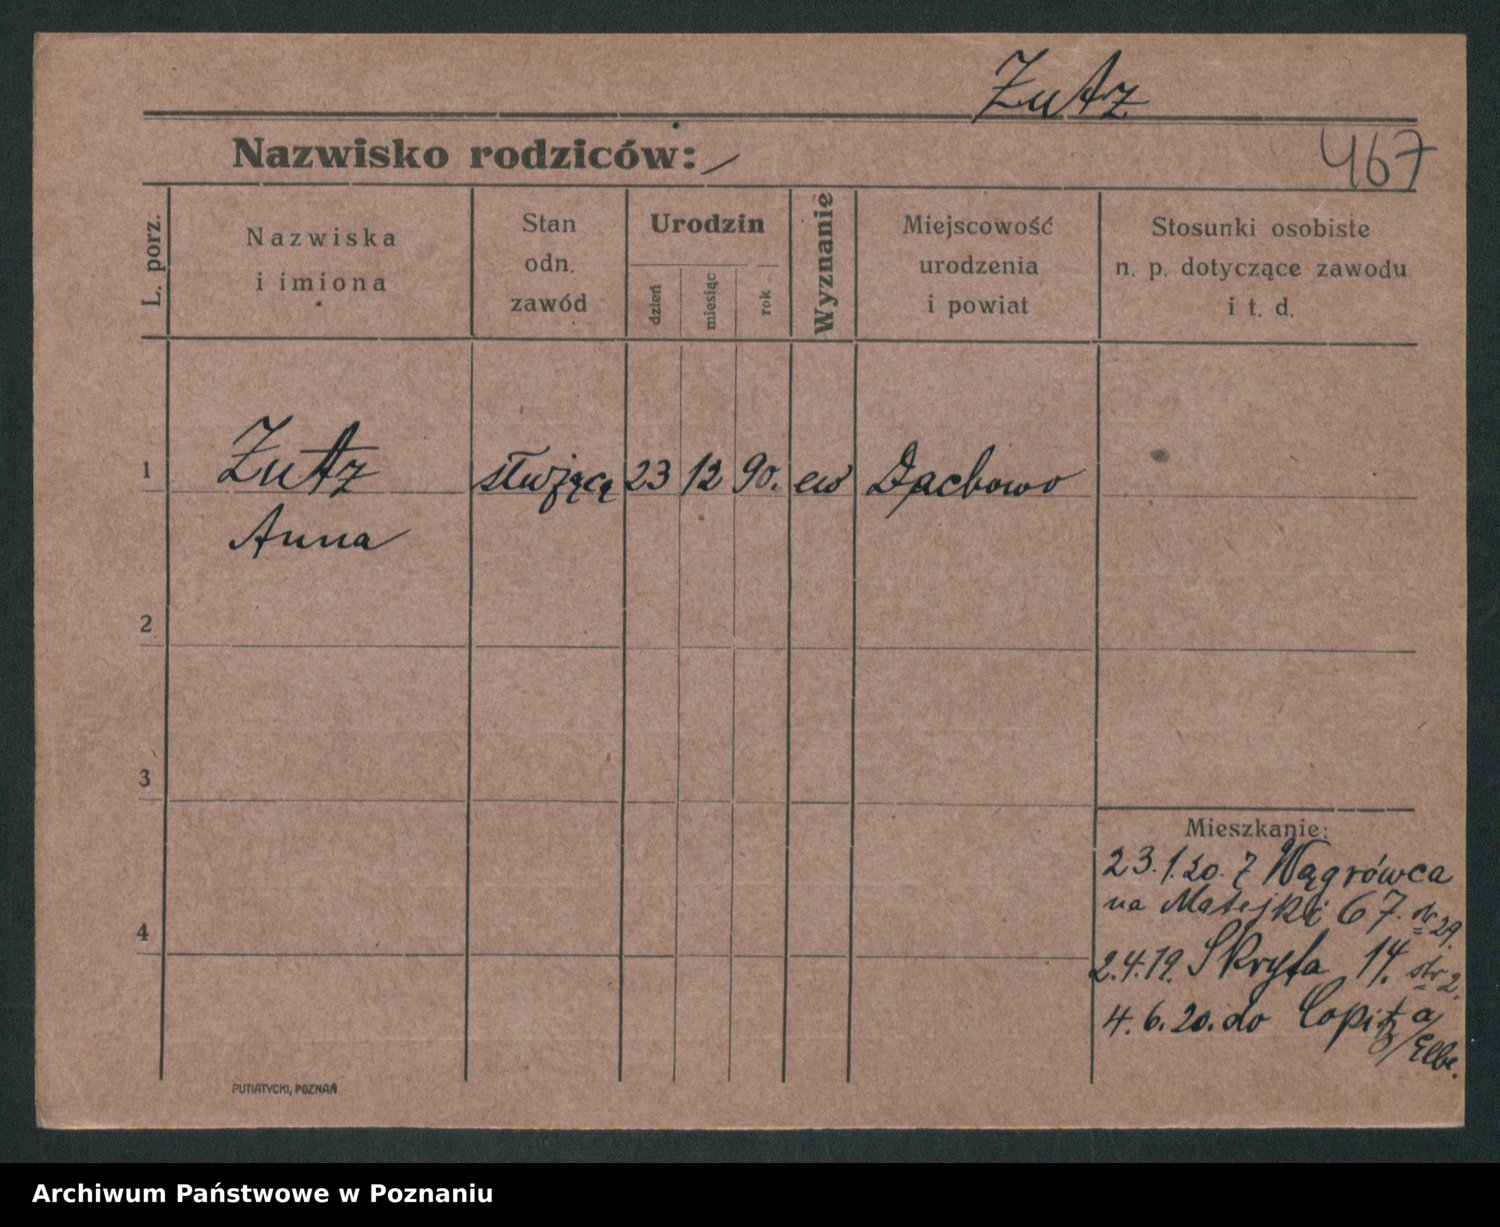 Zutz
467
Nazwisko rodziców:
L. porz.
Nazwiska
i imiona
Stan
odn.
zawód
Urodzin
dzień
miesiąc
rok
Wyznanie
Miejscowość
urodzenia
i powiat
Stosunki osobiste
n. p. dotyczące zawodu
i t. d.
1
Zutz
służącą 23 12 90. ew
Anna
2
3
4
Mieszkanie:
23.1.20. z Wągrówca
na Matejki 67.
2.4.19. Skryta 14. str 2.
4.6.20. do Copitz a/
Elbe.
PUTIATYCKI, POZNAŃ
Archiwum Państwowe w Poznaniu